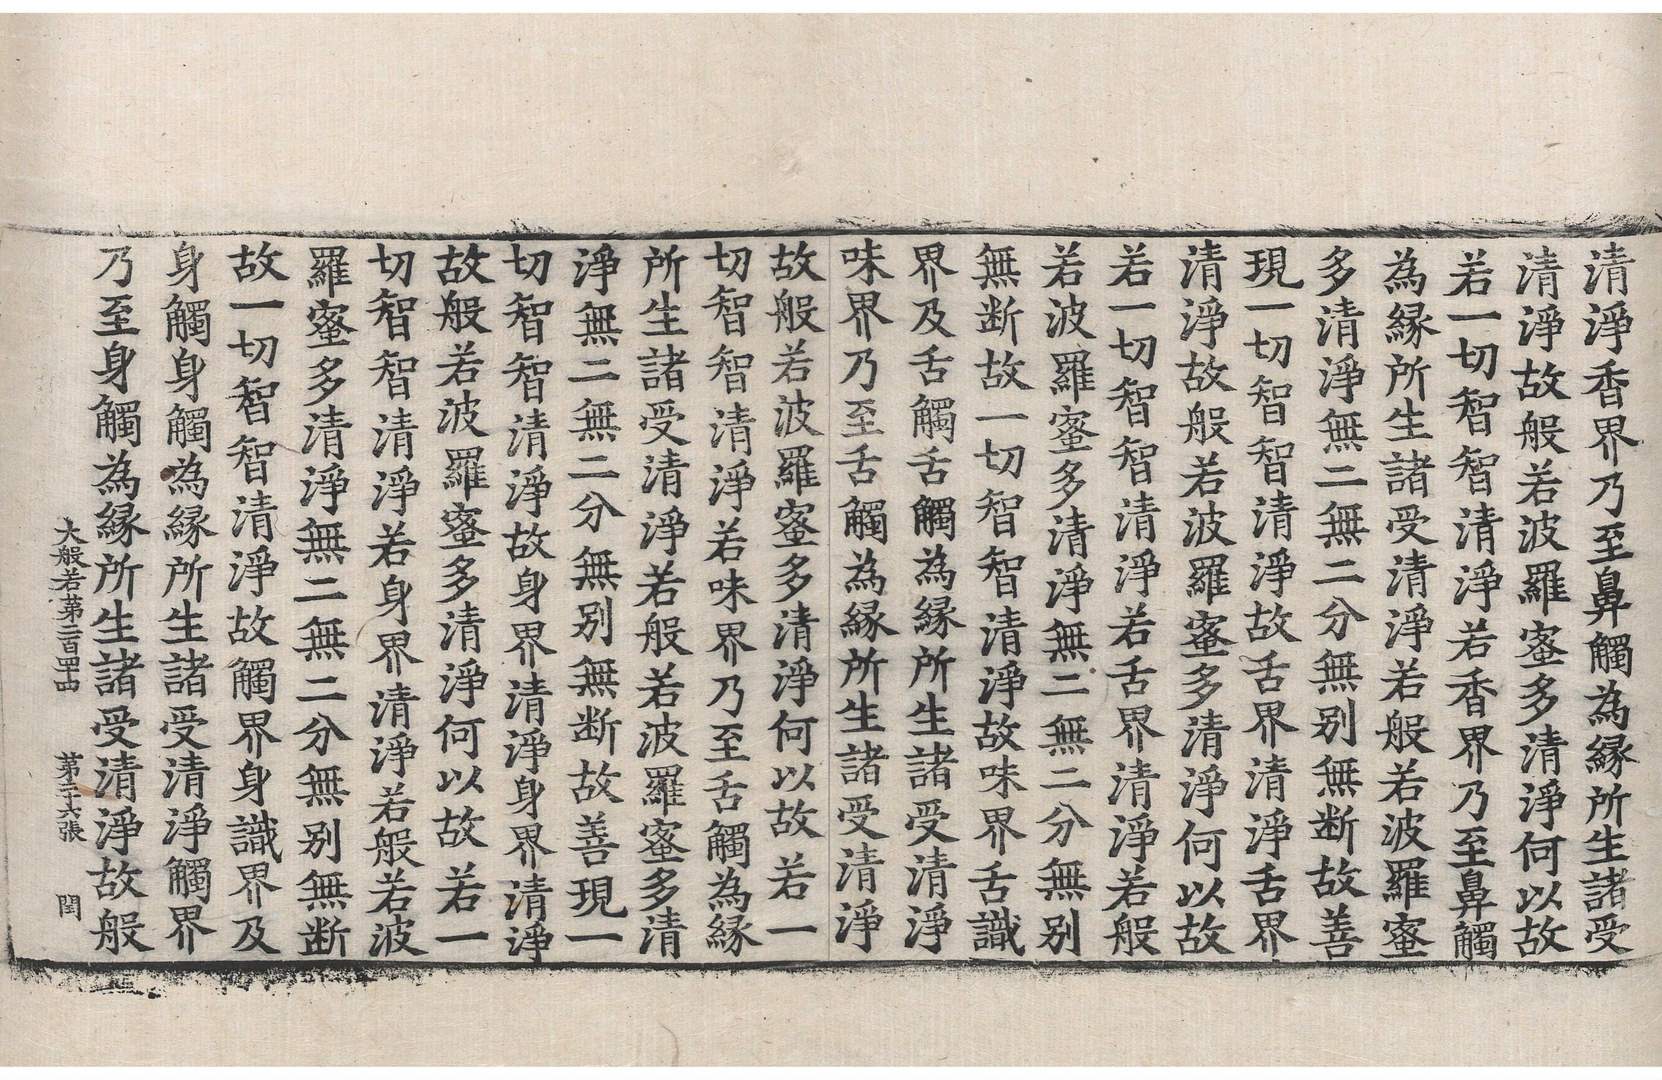 清淨香界乃至鼻觸為縁所生諸受
清淨故般若波羅蜜多清淨何以故
若一切智智清淨若香界乃至鼻觸
為縁所生諸受清淨若般若波羅蜜
多清淨無二無二分無别無断故善
現一切智智清淨故舌界清淨舌界
清淨故般若波羅蜜多清淨何以故
若一切智智清淨若舌界清淨若般
若波羅蜜多清淨無二無二分無别
無断故一切智智清淨故味界舌識
界及舌觸舌觸為縁所生諸受清淨
味界乃至舌觸為縁所生諸受清淨
故般若波羅蜜多清淨何以故若一
切智智清淨若味界乃至舌觸為縁
所生諸受清淨若般若波羅蜜多清
淨無二無二分無别無断故善現一
切智智清淨故身界清淨身界清淨
故般若波羅蜜多清淨何以故若一
切智智清淨若身界清淨若般若波
羅蜜多清淨無二無二分無别無断
故一切智智清淨故觸界身識界及
身觸身觸為縁所生諸受清淨觸界
乃至身觸為縁所生諸受清淨故般
大般若第二百四十四 第二十六張 閏